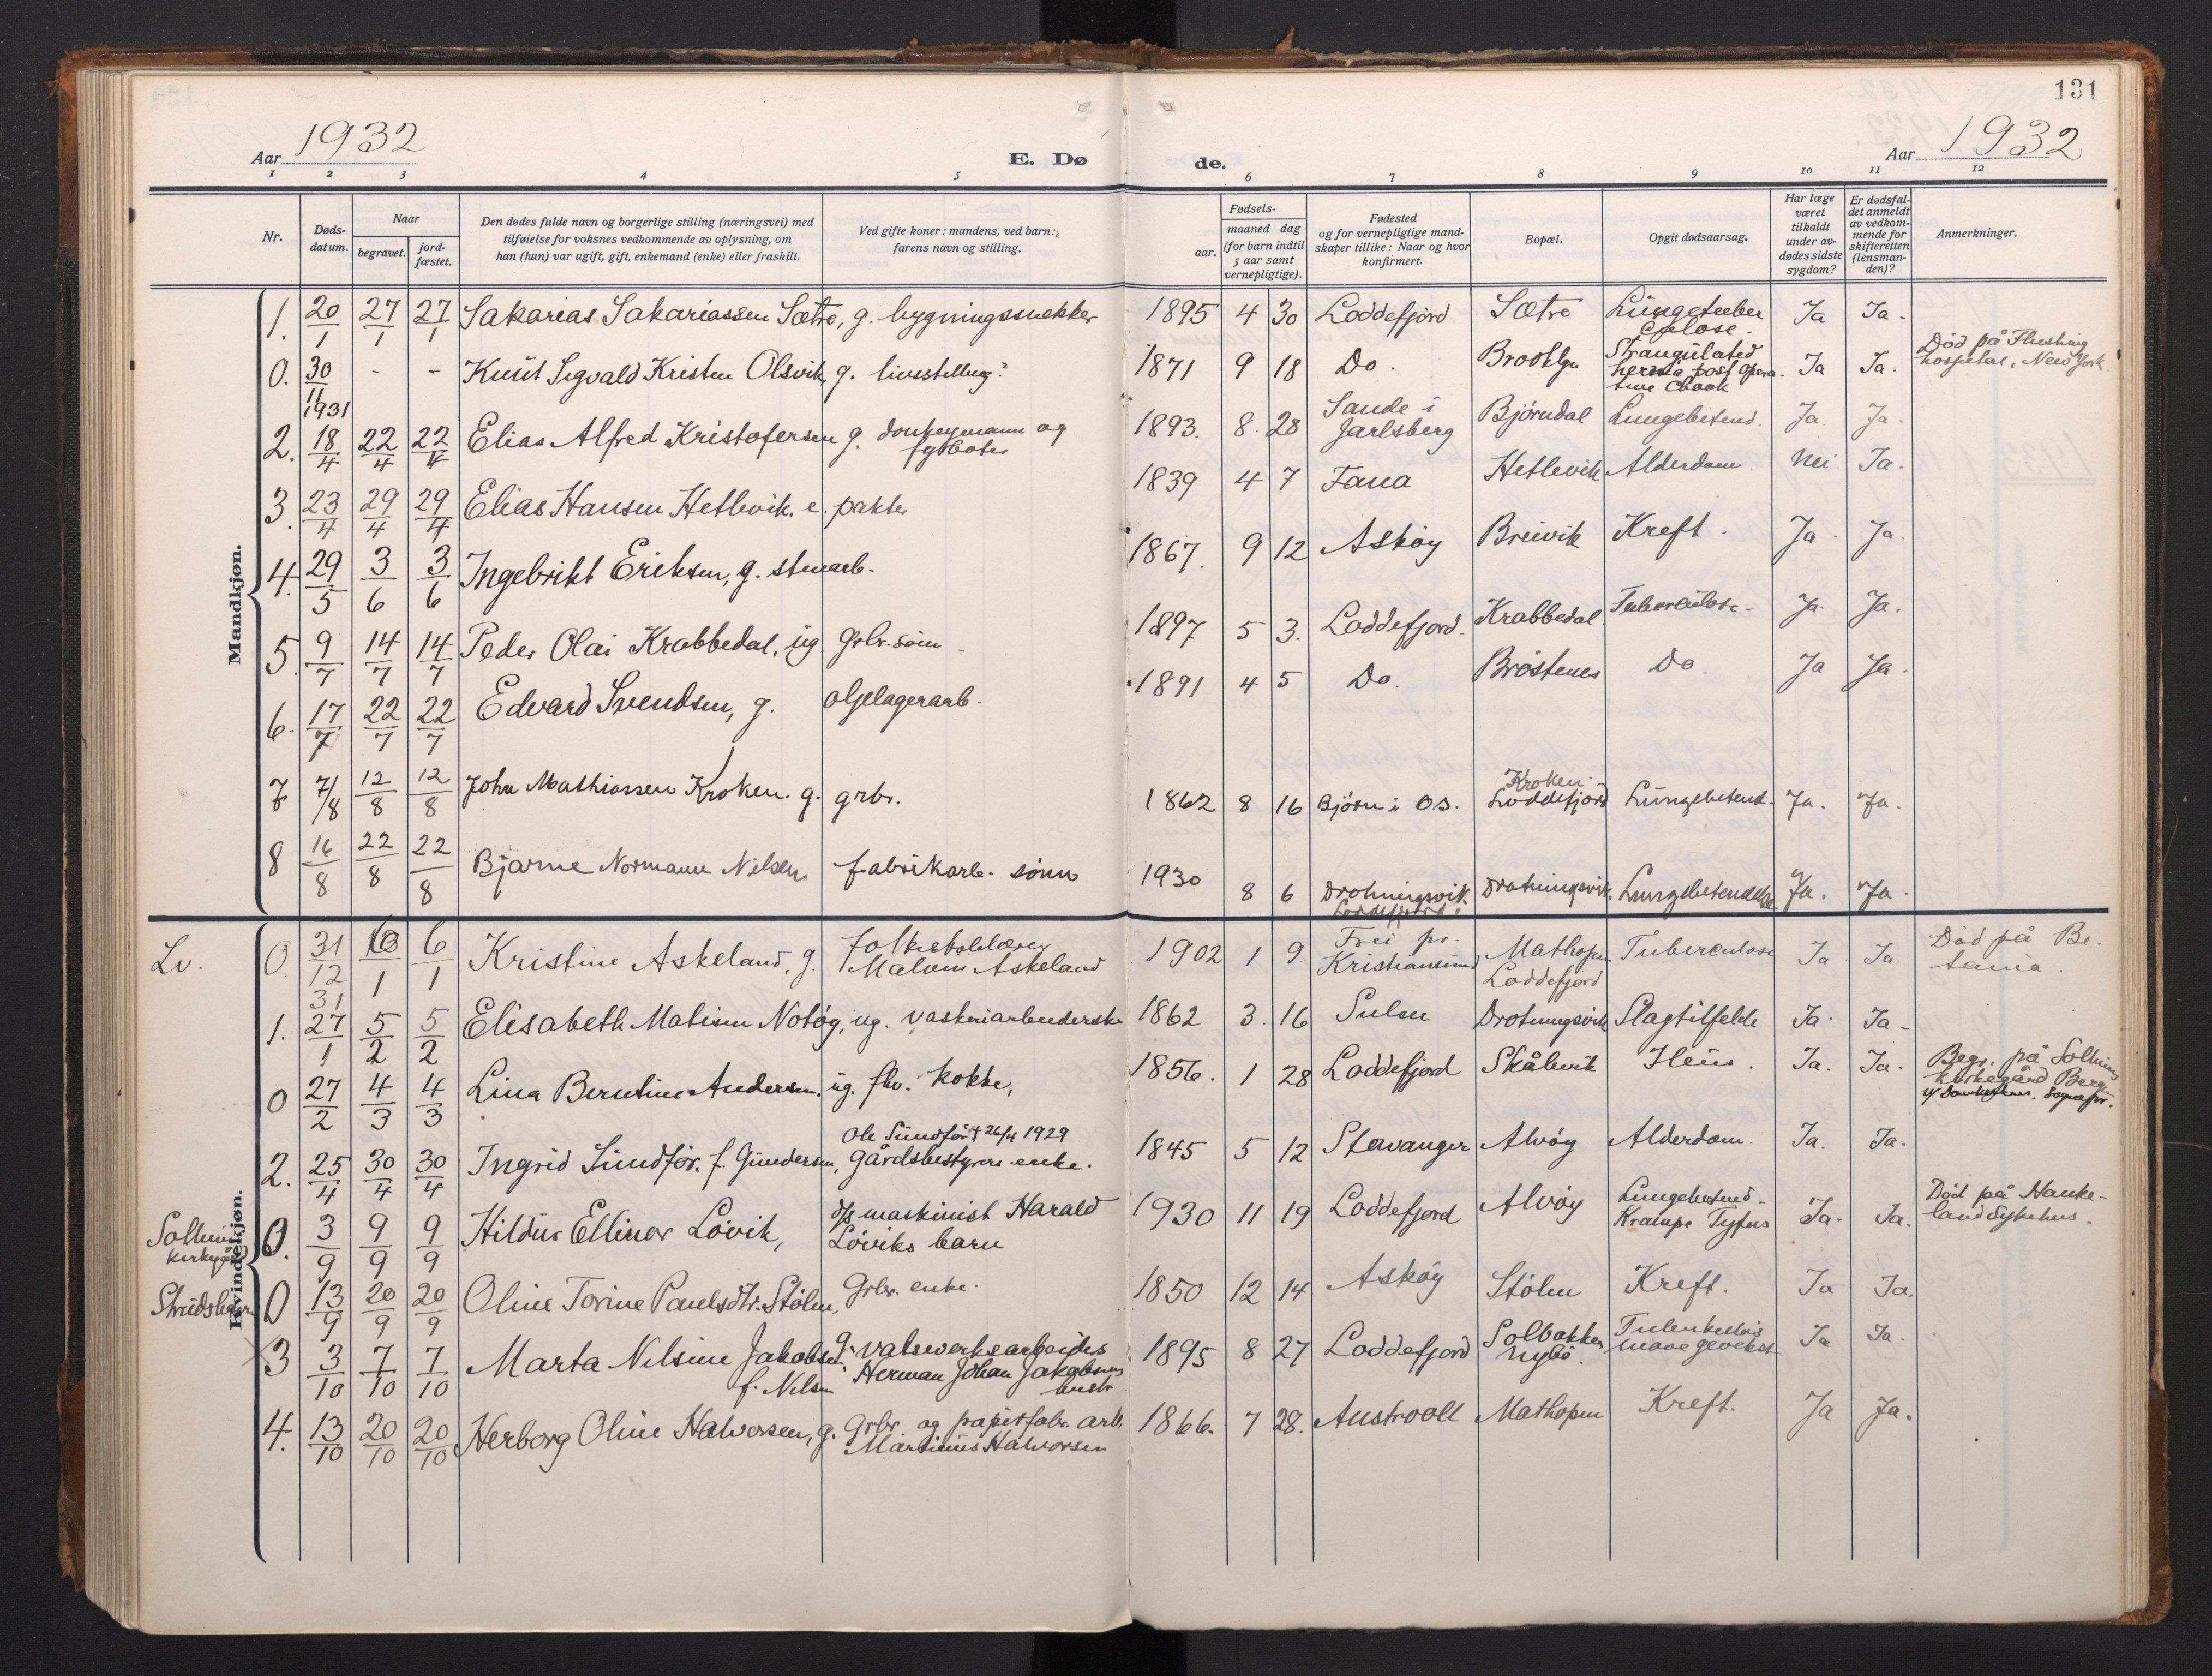 131
Aar 1932
E. Dø
de.
Aar 1932
1 2 3 4 5 6 7 8 9 10 11 12
Nr.
Døds-
datum.
Naar
begravet.
jord-
fæstet.
Den dødes fulde navn og borgerlige stilling (næringsvei) med
tilføielse for voksnes vedkommende av oplysning, om
han (hun) var ugift, gift, enkemand (enke) eller fraskilt.
Ved gifte koner: mandens, ved barn:
farens navn og stilling.
Fødsels-
aar.
maaned dag
(for barn indtil
5 aar samt
vernepligtige).
Fødested
og for vernepligtige mand-
skaper tillike: Naar og hvor
konfirmert.
Bopæl.
Opgit dødsaarsag.
Har læge
været
tilkaldt
under av-
dødes sidste
sygdom?
Er dødsfal-
det anmeldt
av vedkom-
mende for
skifteretten
(lensman-
den)?
Anmerkninger.
Mandkjøn.
1. 20/1 27/1 27/1 Sakarias Sakariassen Sætre, g. bygningssnekker 1895 4 30 Loddefjord Sætre Lungetuber
culose. Ja Ja.
0. 30/11 1931 - - Knut Sigvald Kristen Olsvik, g. livsstilling? 1871 9 18 Do. Brooklyn Strangulated
hernia post opera-
tive Chock Ja Ja. Død på Flushing
hospital, New York.
2. 18/4 22/4 22/4 Elias Alfred Kristofersen g. donkeymann og
fyrbøter 1893. 8. 28 Sande i
Jarlsberg Bjørndal Lungebetend. Ja. Ja.
3. 23/4 29/4 29/4 Elias Hansen Hetlevik. e. pakter 1839 4 7 Fana Hetlevik Alderdom Nei Ja.
4. 29/5 3/6 3/6 Ingebrikt Eriksen, g. stenarb. 1867. 9 12 Askøy Breivik Kreft. Ja. Ja.
5. 9/7 14/7 14/7 Peder Olai Krabbedal, ug. grbr. søn 1897 5 3. Loddefjord. Krabbedal Tuberculose Ja. Ja.
6. 17/7 22/7 22/7 Edvard Svendsen, g. oljelagerarb. 1891 4 5 Do. Brøstenes Do. Ja Ja.
7 7/8 12/8 12/8 John Mathiassen Kroken. g. grbr. 1862 8 16 Bjørn i Os. Kroken
Loddefjord Lungebetend. Ja. Ja.
8 16/8 22/8 22/8 Bjarne Normann Nilsen fabrikarb. sønn 1930 8 6 Drotningsvik
Loddefjord. Drotningsvik. Lungebetendelse Ja. Ja.
Kvindekjøn.
Lv. 0. 31/12 6/1 6/1 Kristine Askeland, g. folkeskolelærer
Malvin Askeland 1902 1 9. Frei pr.
Kristiansund Mathopen
Loddefjord Tuberculose Ja Ja Død på Be-
tania.
1. 31 27/1 5/2 5/2 Elisabeth Matisen Notøy, ug. vaskeriarbeiderske 1862 3. 16 Sulen Drotningsvik Slagtilfelde Ja. Ja.
0 27/2 4/3 4/3 Lina Berntine Andersen. ug. fhv. kokke, 1856. 1 28 Loddefjord Skålevik Ja. Ja. Begr. på Solheims
kirkegård Bergen
2. 25/4 30/4 30/4 Ingrid Sundfør. f. Gundersen, Ole Sundfør † 26/4 1929
gårdsbestyrers enke. 1845 5 12 Stavanger Alvøy Alderdom. Ja. Ja.
Solheims
kirkegård 0. 3/9 9/9 9/9 Hildur Ellinor Løvik, d/s maskinist Harald
Løviks barn 1930 11 19 Loddefjord Alvøy Lungebetend.
Krampe Tyfus Ja. Ja. Død på Hauke-
land Sykehus.
Strudshavn 0 13/9 20/9 20/9 Oline Torine Paulsdtr. Stølen, Grbr. enke. 1850 12 14 Askøy Stølen Kreft. Ja Ja.
3 3/10 7/10 7/10 Marta Nilsine Jakobsen
f. Nilsen g. valseverksarbeider
Herman Johan Jakobsens
hustr 1895 8 27 Loddefjord Solbakken
Nybø. Tuberkuløs
mavegevekst Ja Ja.
4. 13/10 20/10 20/10 Herborg Oline Halvorsen, g. Grbr. og papirfabr. arb.
Martinus Halvorsen 1866. 7 28. Austrvoll Mathopen Kreft. Ja Ja.